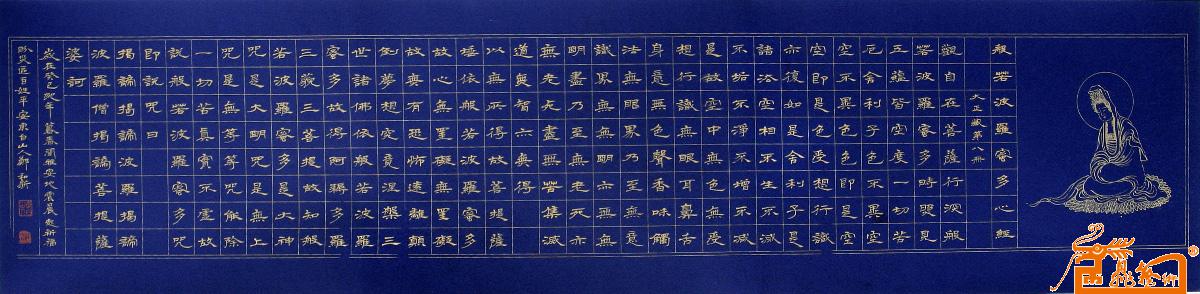 般若波羅蜜多心經
大正藏第八冊
觀自在菩薩行深般
若波羅蜜多時照見
五蘊皆空度一切苦
厄舍利子色不異空
空不異色色即是空
空即是色受想行識
亦復如是舍利子是
諸法空相不生不滅
不垢不淨不增不減
是故空中無色無受
想行識無眼耳鼻舌
身意無色聲香味觸
法無眼界乃至無意
識界無無明亦無無
明盡乃至無老死亦
無老死盡無苦集滅
道無智亦無得
以無所得故菩提薩
埵依般若波羅蜜多
故心無罣礙無罣礙
故無有恐怖遠離顛
倒夢想究竟涅槃三
世諸佛依般若波羅
蜜多故得阿耨多羅
三藐三菩提故知般
若波羅蜜多是大神
咒是大明咒是無上
咒是無等等咒能除
一切苦真實不虛故
說般若波羅蜜多咒
即說咒曰
揭諦揭諦波羅揭諦
波羅僧揭諦菩提薩
婆訶
歲在癸巳蛇年暮春聞雅安地震晨起祈福
盼災區百姓平安東白山人鄭